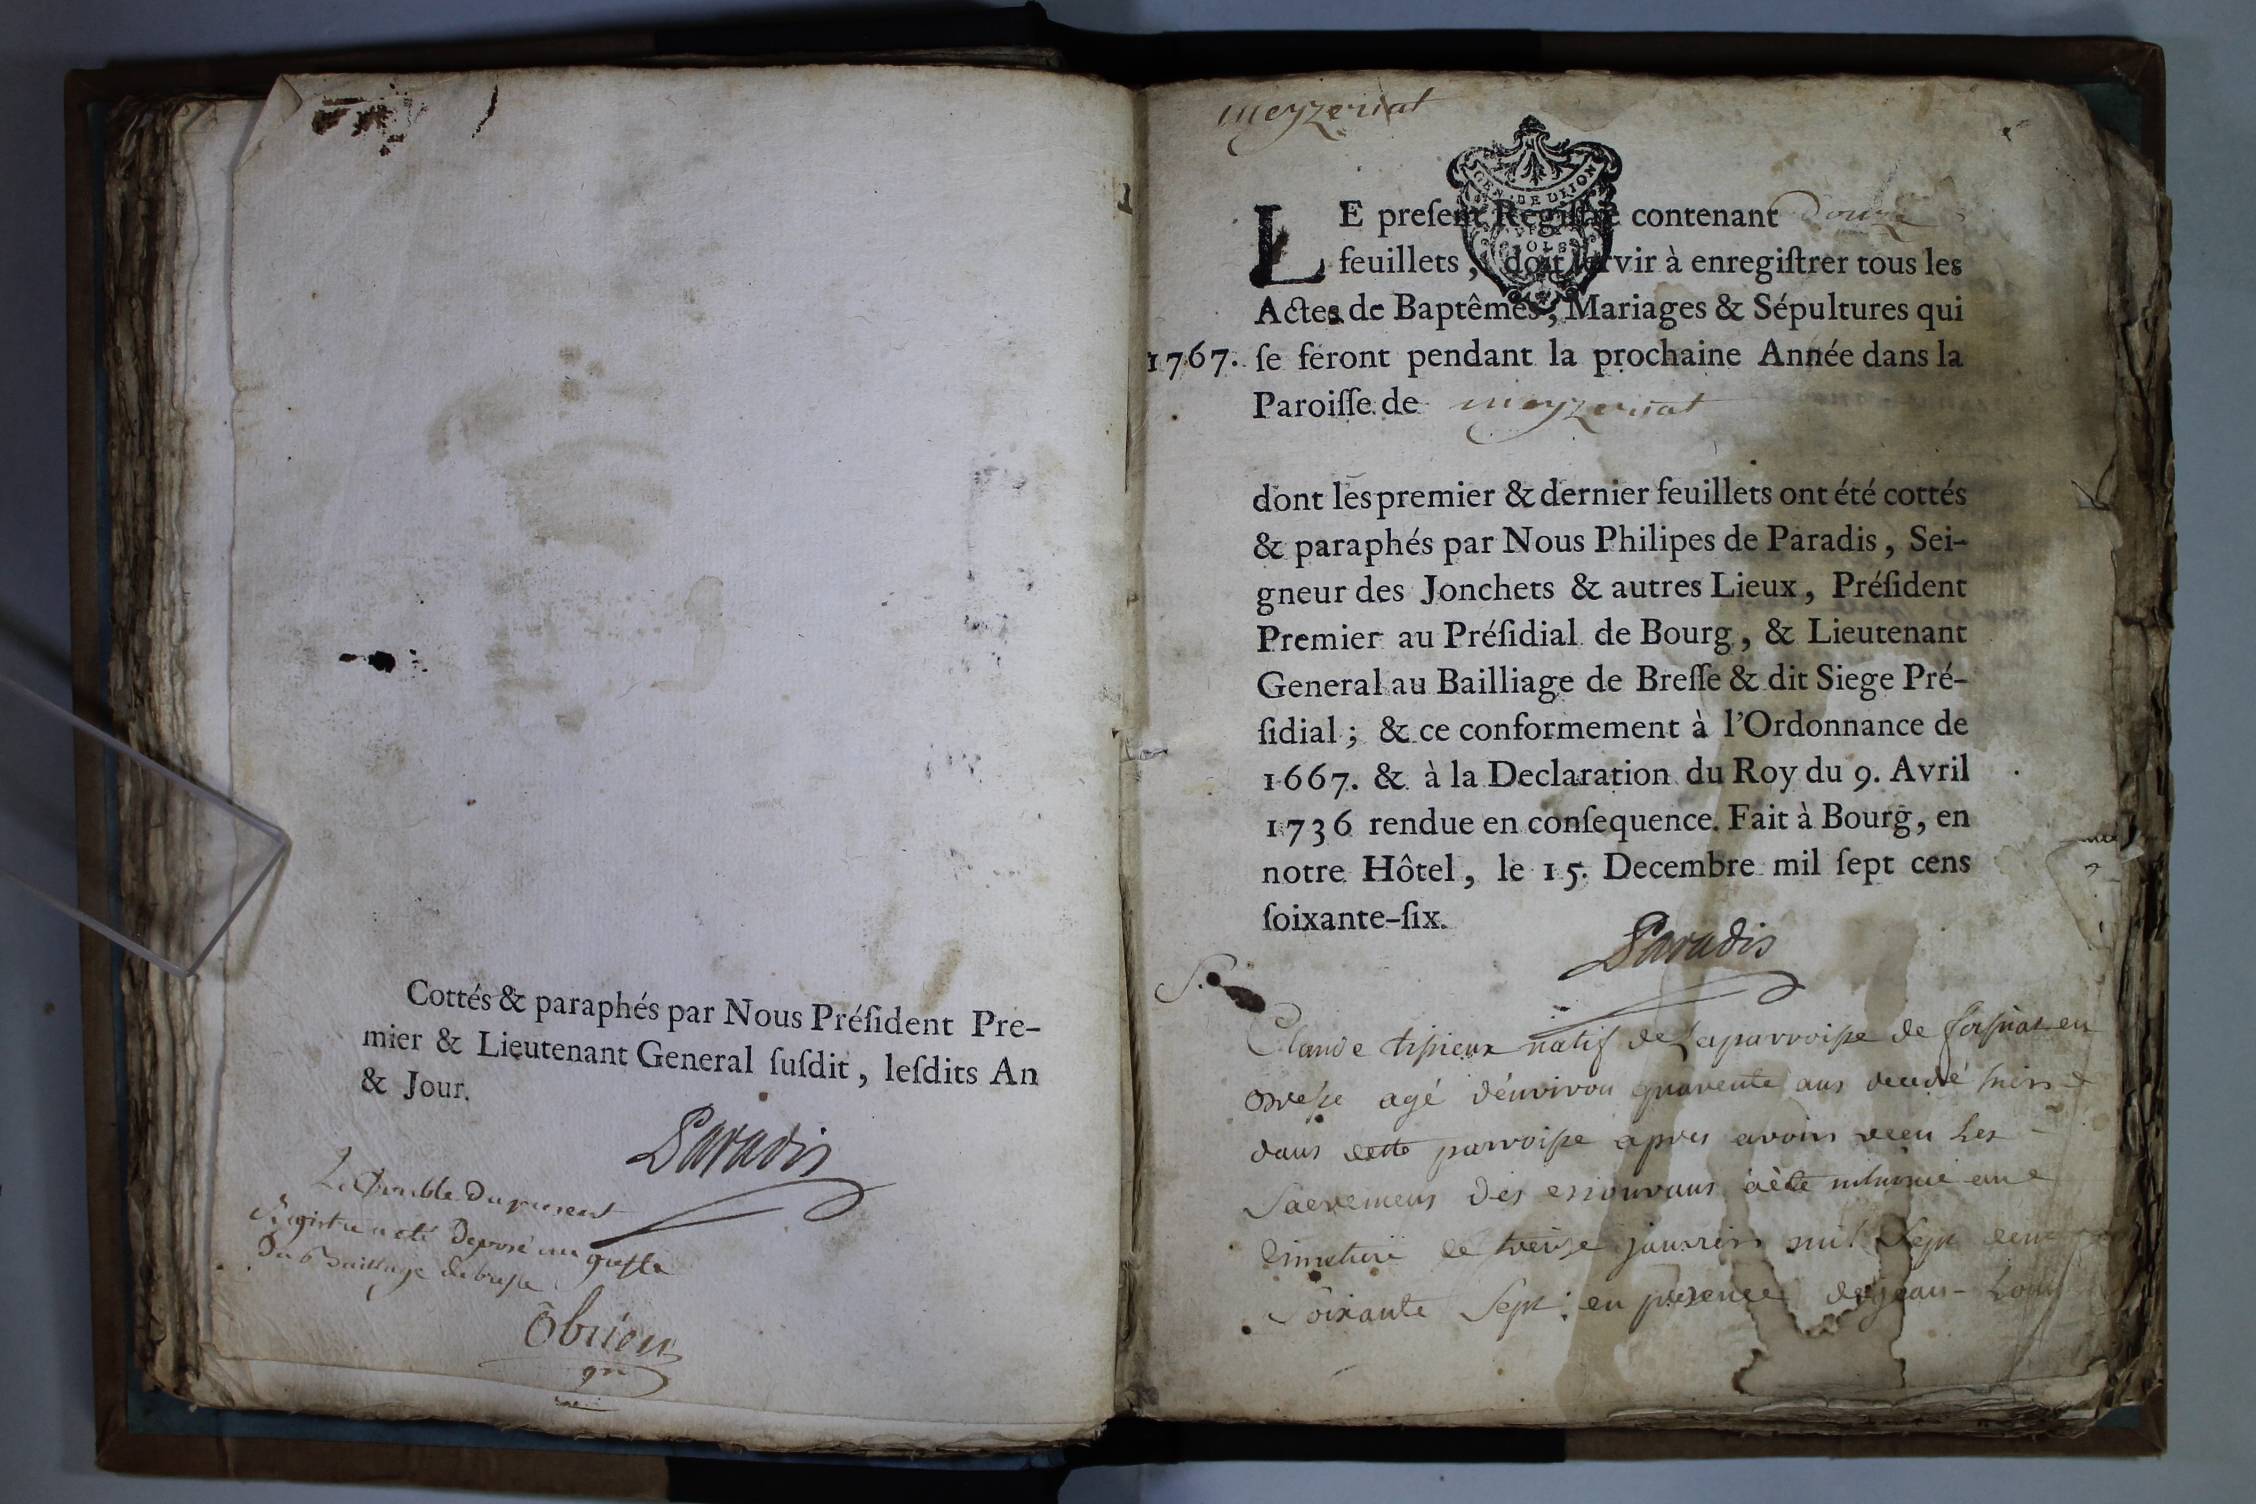 Cottés & paraphés par Nous Préſident Pre-
mier & Lieutenant General ſuſdit, leſdits An
& Jour.
Paradis
Le Double du present
Registre a eté Deposé au greffe
Du Bailliage de bresse
Obrien
meyzeriat
GEN. DE DIJON
LE preſent Regiſtre contenant douze
feuillets, doit ſervir à enregiſtrer tous les
Actes de Baptêmes, Mariages & Sépultures qui
1767. ſe feront pendant la prochaine Année dans la
Paroiſſe de meyzeriat
dont les premier & dernier feuillets ont été cottés
& paraphés par Nous Philipes de Paradis, Sei-
gneur des Jonchets & autres Lieux, Préſident
Premier au Préſidial de Bourg, & Lieutenant
General au Bailliage de Breſſe & dit Siege Pré-
ſidial; & ce conformement à l'Ordonnance de
1667. & à la Declaration du Roy du 9. Avril
1736 rendue en conſequence. Fait à Bourg, en
notre Hôtel, le 15. Decembre mil ſept cens
ſoixante-ſix.
Paradis
S.
Claude natif de la parroisse de en
agé d'environ quarente ans
dans cette parroisse apres avoir recu les
Sacremens des mourans a été au
cimetiere le treize janvier mil Sept cent
Soixante Sept: en presence de jean-Louis